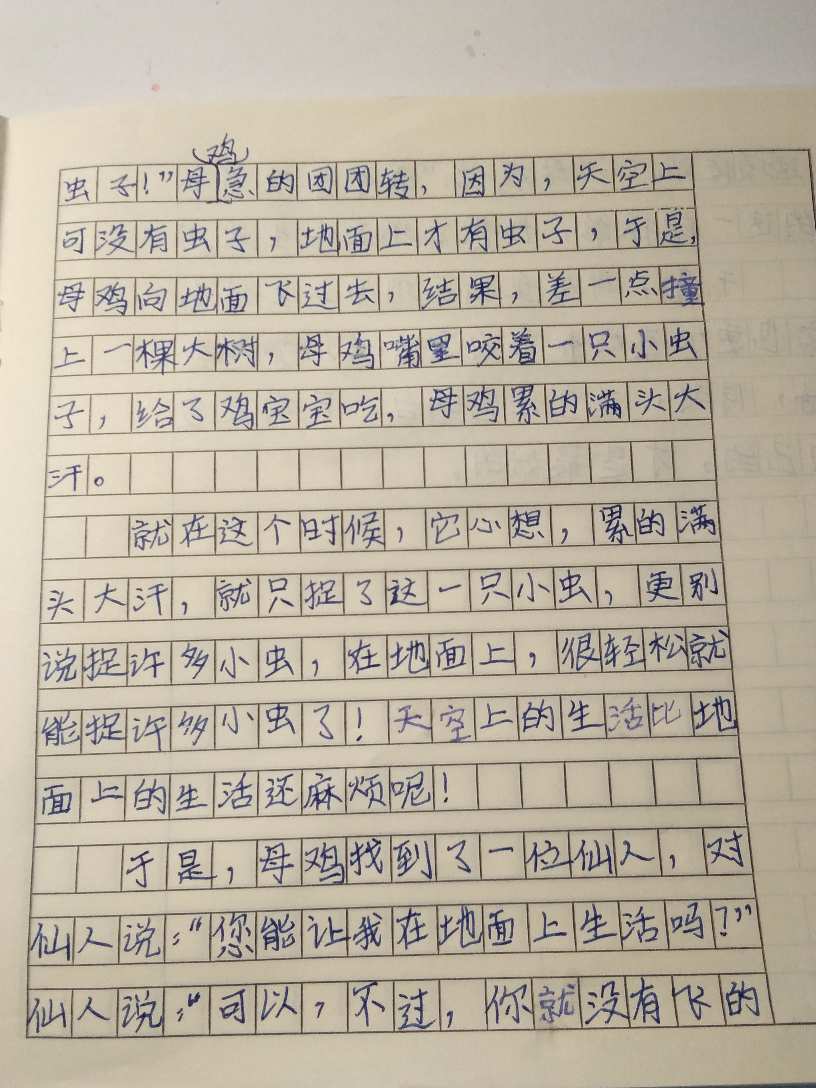 虫子！”母(鸡)急的团团转，因为，天空上
可没有虫子，地面上才有虫子，于是，
母鸡向地面飞过去，结果，差一点撞
上一棵大树，母鸡嘴里咬着一只小虫
子，给了鸡宝宝吃，母鸡累的满头大
汗。
就在这个时候，它心想，累的满
头大汗，就只捉了这一只小虫，更别
说捉许多小虫，在地面上，很轻松就
能捉许多小虫了！天空上的生活比地
面上的生活还麻烦呢！
于是，母鸡找到了一位仙人，对
仙人说：“您能让我在地面上生活吗？”
仙人说：“可以，不过，你就没有飞的